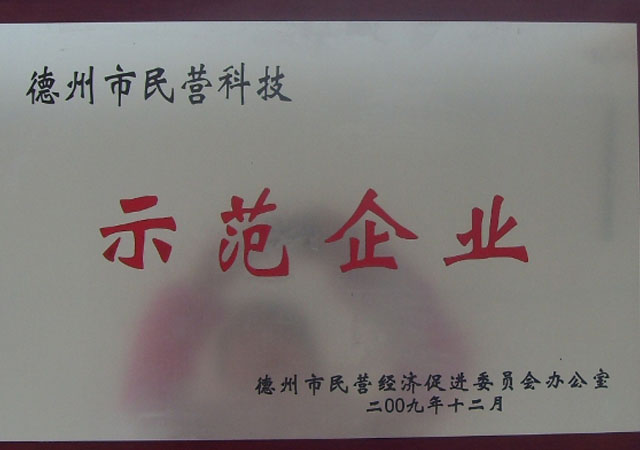 德州市民营科技
示范企业
德州市民营经济促进委员会办公室
二00九年十二月